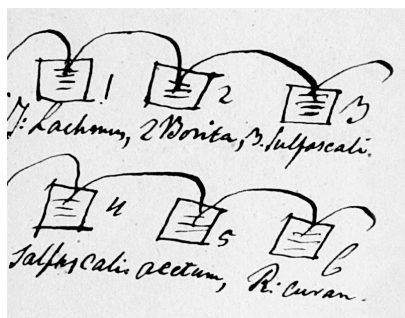 1 2 3
1: Lachmus, 2 Borita, 3. Sulfascali.
4 5 6
Salfascalis acetum, R: curan.